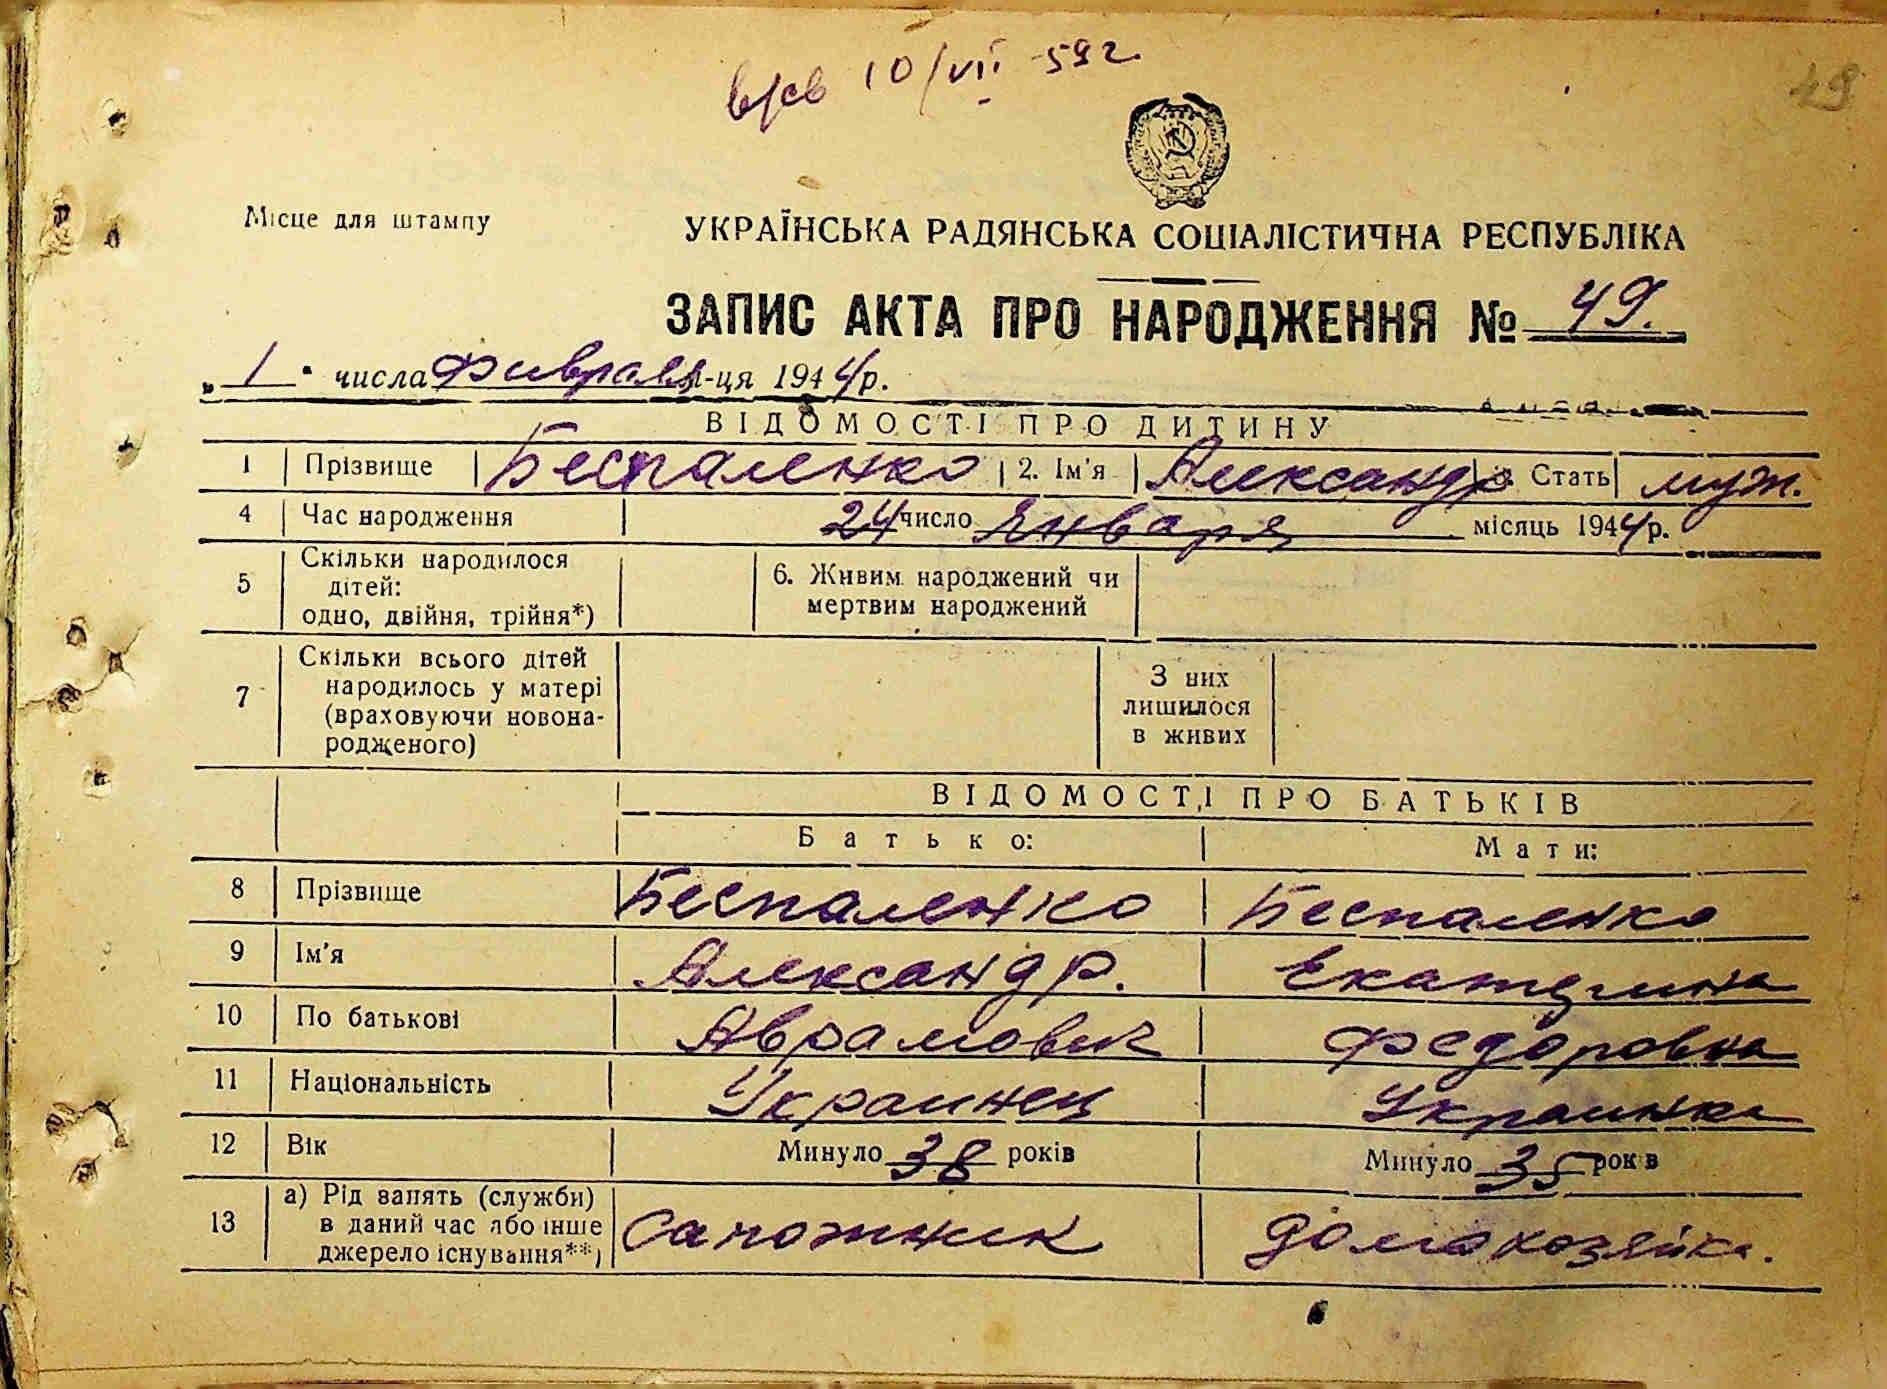 в/св 10/VII-59г.
49
Місце для штампу
УКРАЇНСЬКА РАДЯНСЬКА СОЦІАЛІСТИЧНА РЕСПУБЛІКА
ЗАПИС АКТА ПРО НАРОДЖЕННЯ № 49.
„1" числа Фивраля м-ця 1944 р.
ВІДОМОСТІ ПРО ДИТИНУ
1 Прізвище Беспаленко 2. Ім'я Александр 3. Стать муж.
4 Час народження 24 число Января місяць 1944 р.
5 Скільки народилося дітей: одно, двійня, трійня*) 6. Живим народжений чи мертвим народжений
7 Скільки всього дітей народилось у матері (враховуючи новонародженого) З них лишилося в живих
ВІДОМОСТІ ПРО БАТЬКІВ
Батько: Мати:
8 Прізвище Беспаленко Беспаленко
9 Ім'я Александр. Екатерина
10 По батькові Аврамович Федоровна
11 Національність Украинец Украинка
12 Вік Минуло 38 років Минуло 35 років
13 а) Рід занять (служби) в даний час або інше джерело існування**) Сапожник Домохозяйка.